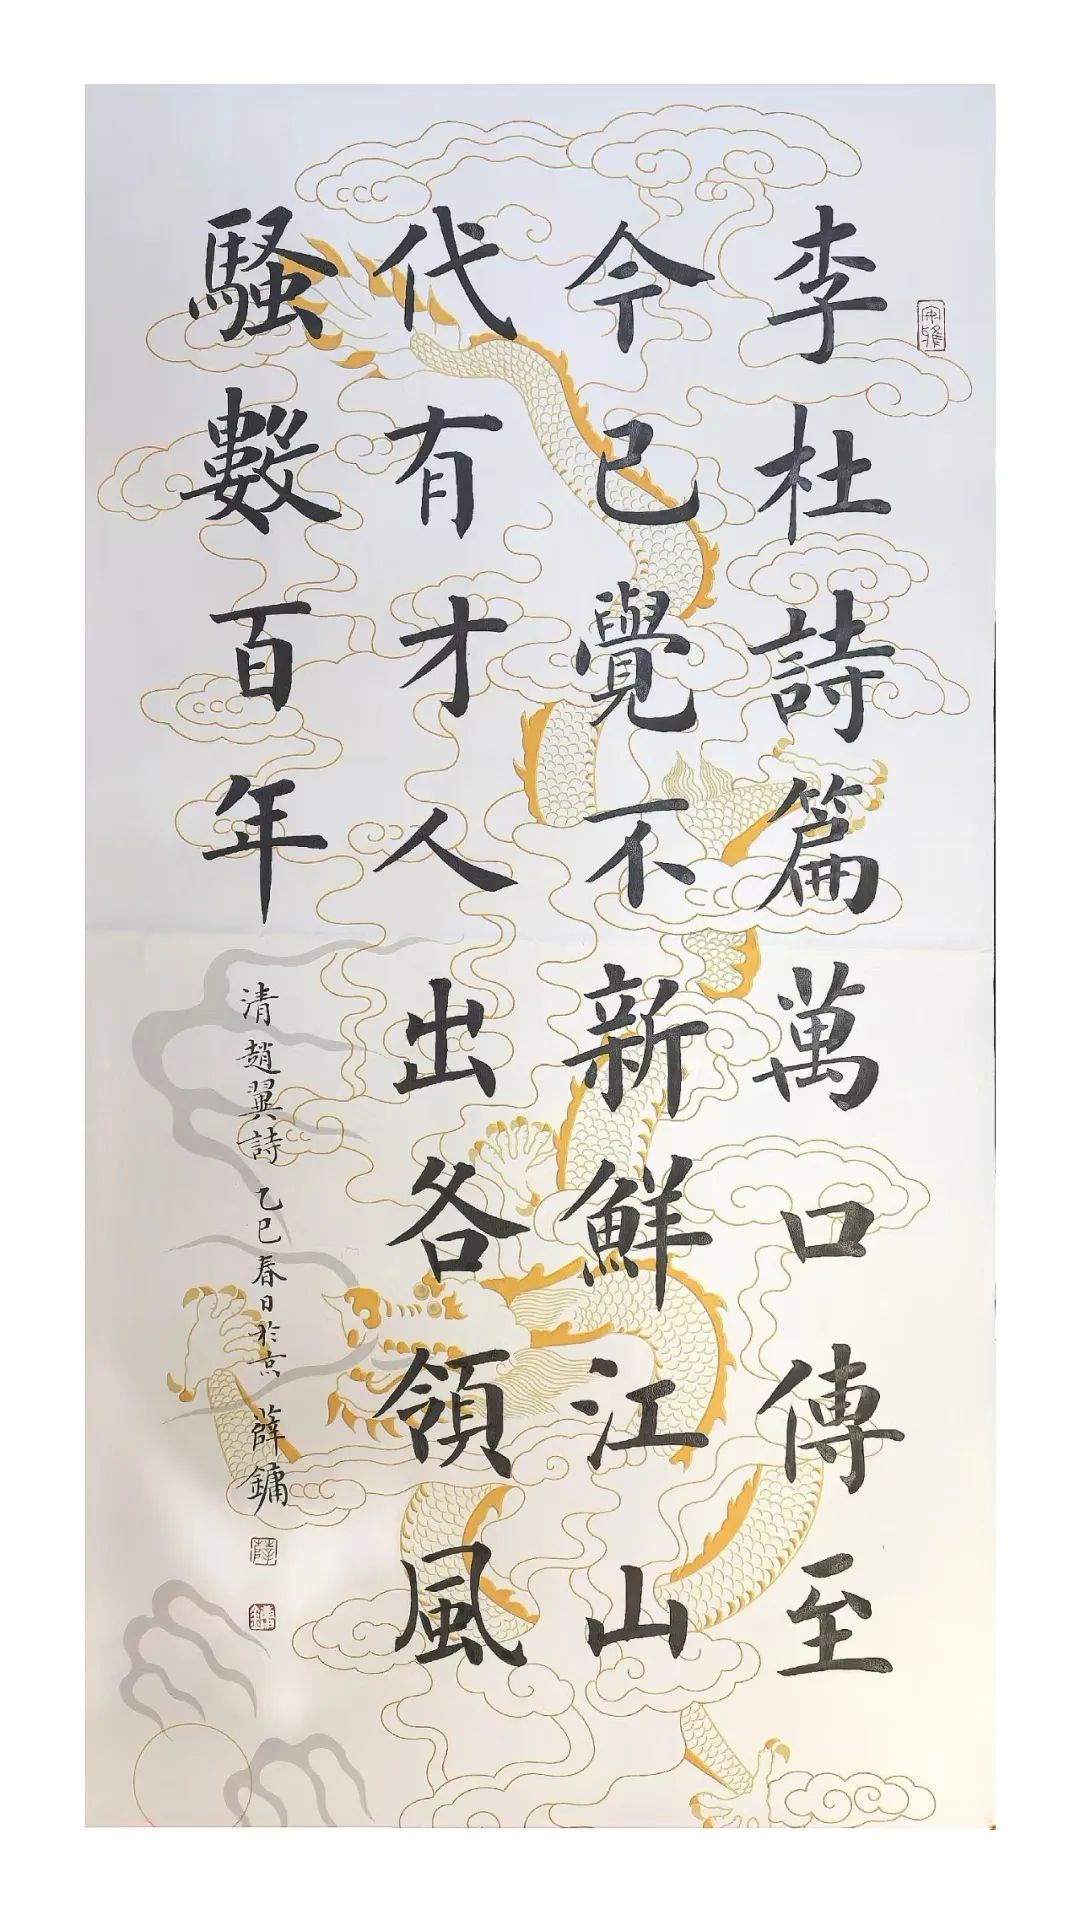 李杜詩篇萬口傳至
今已覺不新鮮江山
代有才人出各領風
騷數百年
清趙翼詩 乙巳春日於京 薛鏞